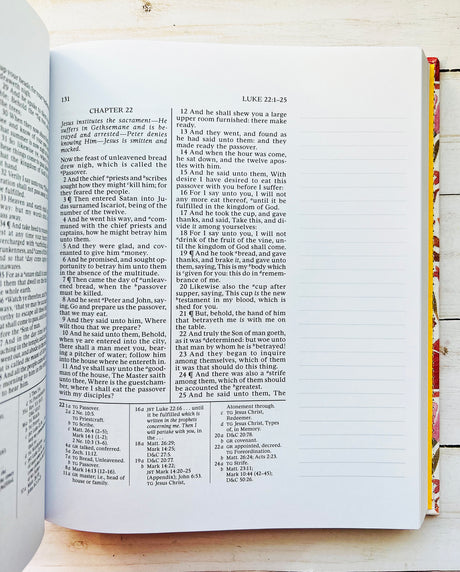 131
LUKE 22:1–25
CHAPTER 22
Jesus institutes the sacrament—He
suffers in Gethsemane and is be-
trayed and arrested—Peter denies
knowing Him—Jesus is smitten and
mocked.
Now the feast of unleavened bread
drew nigh, which is called the
ᵃPassover.
2 And the chief ᵃpriests and ᵇscribes
sought how they might ᶜkill him; for
they feared the people.
3 ¶ Then entered Satan into Ju-
das surnamed Iscariot, being of the
number of the twelve.
4 And he went his way, and ᵃcom-
muned with the chief priests and
captains, how he might betray him
unto them.
5 And they were glad, and cov-
enanted to give him ᵃmoney.
6 And he promised, and sought oppor-
tunity to betray him unto them
in the absence of the multitude.
7 ¶ Then came the day of ᵃunleav-
ened bread, when the ᵇpassover
must be killed.
8 And he sent ᵃPeter and John, say-
ing, Go and prepare us the passover,
that we may eat.
9 And they said unto him, Where
wilt thou that we prepare?
10 And he said unto them, Behold,
when ye are entered into the city,
there shall a man meet you, bear-
ing a pitcher of water; follow him
into the house where he entereth in.
11 And ye shall say unto the ᵃgood-
man of the house, The Master saith
unto thee, Where is the guestcham-
ber, where I shall eat the passover
with my disciples?
12 And he shall shew you a large
upper room furnished: there make
ready.
13 And they went, and found as
he had said unto them: and they
made ready the passover.
14 And when the hour was come,
he sat down, and the twelve apos-
tles with him.
15 And he said unto them, With
desire I have desired to eat this
passover with you before I suffer:
16 For I say unto you, I will not
any more eat thereof, ᵃuntil it be
fulfilled in the kingdom of God.
17 And he took the cup, and gave
thanks, and said, Take this, and di-
vide it among yourselves:
18 For I say unto you, I will not
ᵃdrink of the fruit of the vine, until
the kingdom of God shall come.
19 ¶ And he took ᵃbread, and gave
thanks, and brake it, and gave unto
them, saying, This is my ᵇbody which
is ᶜgiven for you: this do in ᵈremem-
brance of me.
20 Likewise also the ᵃcup after
supper, saying, This cup is the new
ᵇtestament in my blood, which is
shed for you.
21 ¶ But, behold, the hand of him
that betrayeth me is with me on
the table.
22 And truly the Son of man goeth,
as it was ᵃdetermined: but woe unto
that man by whom he is ᵇbetrayed!
23 And they began to inquire
among themselves, which of them
it was that should do this thing.
24 ¶ And there was also a ᵃstrife
among them, which of them should
be accounted the ᵇgreatest.
25 And he said unto them, The
22 1a TG Passover.
2a 2 Ne. 10:5.
TG Priestcraft.
b TG Scribe.
c Matt. 26:4 (2–5);
Mark 14:1 (1–2);
2 Ne. 10:3 (3–6).
4a GR talked, conferred.
5a Zech. 11:12.
7a TG Bread, Unleavened.
b TG Passover.
8a Mark 14:13 (12–16).
11a GR master; i.e., head of
house or family.
16a JST Luke 22:16 . . . until
it be fulfilled which is
written in the prophets
concerning me. Then I
will partake with you, in
the . . .
18a Matt. 26:29;
Mark 14:25;
D&C 27:5.
19a D&C 20:77.
b Mark 14:22;
JST Mark 14:20–25
(Appendix); John 6:53.
TG Jesus Christ,
Atonement through.
c TG Jesus Christ,
Redeemer.
d TG Jesus Christ, Types
of, in Memory.
20a D&C 20:78.
b GR covenant.
22a GR appointed, decreed.
TG Foreordination.
b Matt. 26:24; Acts 2:23.
24a TG Strife.
b Matt. 23:11;
Mark 10:44 (42–45);
D&C 50:26.